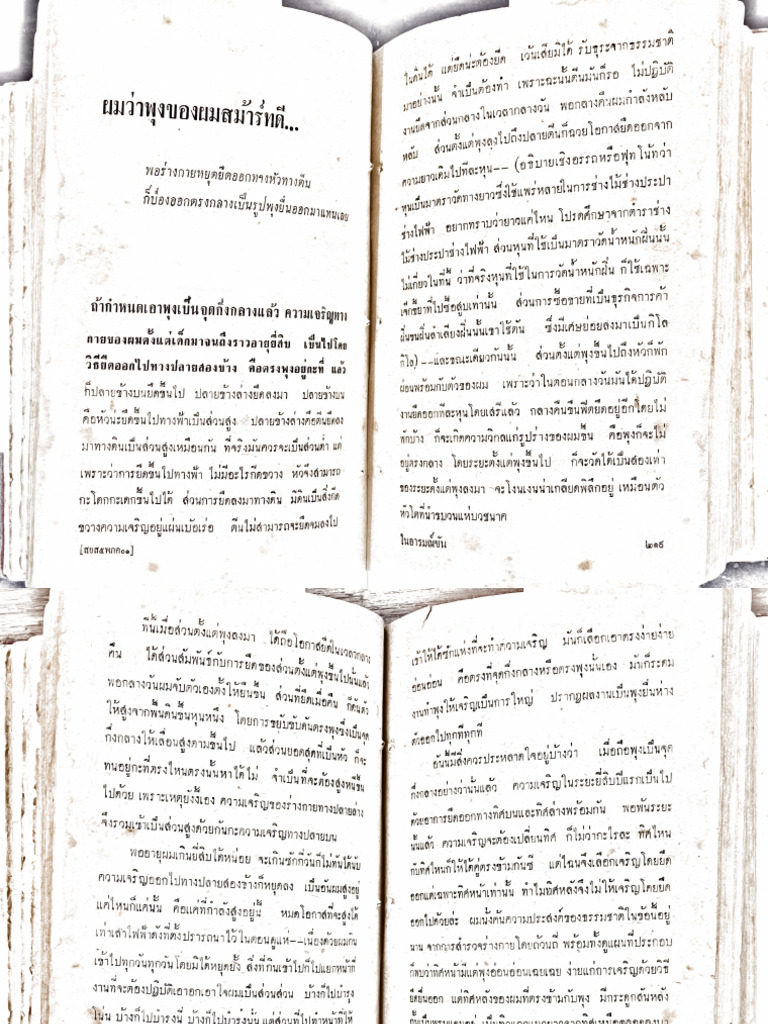 ผมว่าพุงของผมสม้าร์ทดี...
พอร่างกายหยุดยืดออกทางหัวทางตีน
ก็ป่องออกตรงกลางเป็นรูปพุงยื่นออกมาแทนเลย
ถ้ากำหนดเอาพุงเป็นจุดกึ่งกลางแล้ว ความเจริญทาง
กายของผมตั้งแต่เด็กมาจนถึงราวอายุยี่สิบ เป็นไปโดย
วิธียืดออกไปทางปลายสองข้าง คือตรงพุงอยู่กะที่ แล้ว
ก็ปลายข้างบนยืดขึ้นไป ปลายข้างล่างยืดลงมา ปลายข้างบน
คือหัวน่ะยืดขึ้นไปทางฟ้าเป็นส่วนสูง ปลายข้างล่างคือตีนยืดลง
มาทางดินเป็นส่วนสูงเหมือนกัน ที่จริงมันควรจะเป็นส่วนต่ำ แต่
เพราะว่าการยืดขึ้นไปทางฟ้า ไม่มีอะไรกีดขวาง หัวจึงสามารถ
กะโดกกะเดกขึ้นไปได้ ส่วนการยืดลงมาทางดิน มีดินเป็นสิ่งกีด
ขวางความเจริญอยู่แผ่นเบ้อเร่อ ตีนไม่สามารถจะยืดจมลงไป
[สบส๕พกค๐๑]
ในดินได้ แต่ยืดน่ะต้องยืด เว้นเสียมิได้ รับธุระจากธรรมชาติ
มาอย่างนั้น จำเป็นต้องทำ เพราะฉะนั้นตีนมันก็รอ ไม่ปฏิบัติ
งานยืดจากส่วนกลางในเวลากลางวัน พอกลางคืนผมกำลังหลับ
หลับ ส่วนตั้งแต่พุงลงไปถึงปลายตีนก็ฉวยโอกาสยืดออกจาก
ความยาวเดิมไปทีละหุน-- (อธิบายเชิงอรรถหรือฟุทโน้ทว่า
หุนเป็นมาตราวัดทางยาวซึ่งใช้แพร่หลายในการช่างไม้ช่างประปา
ช่างไฟฟ้า อยากทราบว่ายาวแค่ไหน โปรดศึกษาจากตำราช่าง
ไม้ช่างประปาช่างไฟฟ้า ส่วนหุนที่ใช้เป็นมาตราวัดน้ำหนักฝิ่นนั้น
ไม่เกี่ยวในที่นี้ ว่าที่จริงหุนที่ใช้ในการวัดน้ำหนักฝิ่น ก็ใช้เฉพาะ
เจ๊กขี้ยาที่ไปซื้อสูบเท่านั้น ส่วนการซื้อขายที่เป็นธุรกิจการค้า
ฝิ่นขนฝิ่นลำเลียงฝิ่นนั้นเขาใช้ตัน ซึ่งมีเศษย่อยลงมาเป็นกิโล
กิโล)--และขณะเดียวกันนั้น ส่วนตั้งแต่พุงขึ้นไปถึงหัวก็พัก
ผ่อนพร้อมกับตัวของผม เพราะว่าในตอนกลางวันมันได้ปฏิบัติ
งานยืดออกทีละหุนโดยเสร็จแล้ว กลางคืนขืนพืดยืดอยู่อีกโดยไม่
พักบ้าง ก็จะเกิดความวิกลแก่รูปร่างของผมขึ้น คือพุงก็จะไม่
อยู่ตรงกลาง โดยระยะตั้งแต่พุงขึ้นไป ก็จะวัดได้เป็นสองเท่า
ของระยะตั้งแต่พุงลงมา จะโงนเงนน่าเกลียดพิลึกอยู่ เหมือนตัว
หัวโตที่นำขบวนแห่บวชนาค
ในอารมณ์ขัน ๒๑๙
ทีนี้เมื่อส่วนตั้งแต่พุงลงมา ได้ถือโอกาสยืดในเวลากลาง
คืน ได้ส่วนสัมพันธ์กับการยืดของส่วนตั้งแต่พุงขึ้นไปนั้นแล้ว
พอกลางวันผมจับตัวเองตั้งให้ยืนขึ้น ส่วนที่ยืดเมื่อคืน ก็ดันตัว
ให้สูงจากพื้นดินขึ้นหุนหนึ่ง โดยการขยับขับดันตรงพุงซึ่งเป็นจุด
กึ่งกลางให้เลื่อนสูงตามขึ้นไป แล้วส่วนยอดสุดที่เป็นหัว ก็จะ
ทนอยู่กะที่ตรงไหนตรงนั้นหาได้ไม่ จำเป็นที่จะต้องสูงหนีขึ้น
ไปด้วย เพราะเหตุยังงี้เอง ความเจริญของร่างกายทางปลายล่าง
จึงรวมเข้าเป็นส่วนสูงด้วยกันกะความเจริญทางปลายบน
พออายุผมเกินยี่สิบได้หน่อย จะเกินซักกี่วันก็ไม่ทันได้นับ
ความเจริญออกไปทางปลายสองข้างก็หยุดลง เป็นอันผมสูงอยู่
แค่ไหนก็แค่นั้น คือแค่ที่กำลังสูงอยู่นี้ หมดโอกาสที่จะสูงได้
เท่าเสาไฟฟ้าดังที่ตั้งปรารถนาไว้ในตอนดูแห่--เนื่องด้วยผมกิน
เข้าไปทุกวันทุกวันโดยมิได้หยุดยั้ง สิ่งที่กินเข้าไปก็ไปแยกหน้าที่
งานที่จะต้องปฏิบัติเอาอกเอาใจผมเป็นส่วนส่วน บ้างก็ไปบำรุง
โน่น บ้างก็ไปบำรุงนี่ บ้างก็ไปบำรุงนั่น แต่ส่วนที่ไปทำหน้าที่ให้
เข้าให้ได้ซักแห่งที่จะทำความเจริญ มันก็เลือกเอาตรงง่ายง่าย
อ่อนอ่อน คือตรงที่จุดกึ่งกลางหรือตรงพุงนั้นเอง มันก็ระดม
งานทำพุงให้เจริญเป็นการใหญ่ ปรากฏผลงานเป็นพุงยื่นห่าง
ตัวออกไปทุกทีทุกที
อันนี้มีสิ่งควรประหลาดใจอยู่บ้างว่า เมื่อถือพุงเป็นจุด
กึ่งกลางอย่างว่านั้นแล้ว ความเจริญในระยะยี่สิบปีแรกเป็นไป
ด้วยอาการยืดออกทางทิศบนและทิศล่างพร้อมกัน พอพ้นระยะ
นั้นแล้ว ความเจริญจะต้องเปลี่ยนทิศ ก็ไม่ว่ากะไรละ ทิศไหน
กับทิศไหนก็ให้ได้คู่ตรงข้ามกันซี แต่ไฉนจึงเลือกเจริญโดยยืด
ออกแต่เฉพาะทิศหน้าเท่านั้น ทำไมทิศหลังจึงไม่ให้เจริญโดยยืด
ออกไปด้วยล่ะ ผมนั่งค้นความประสงค์ของธรรมชาติในข้อนี้อยู่
นาน จากการสำรวจร่างกายโดยถ้วนถี่ พร้อมทั้งดูแผนที่ประกอบ
ก็พบว่าทิศหน้ามีแต่พุงอ่อนอ่อนเฉยเฉย ง่ายแก่การเจริญด้วยวิธี
ยืดยื่นออก แต่ทิศหลังของผมที่ตรงข้ามกับพุง มีกระดูกสันหลัง